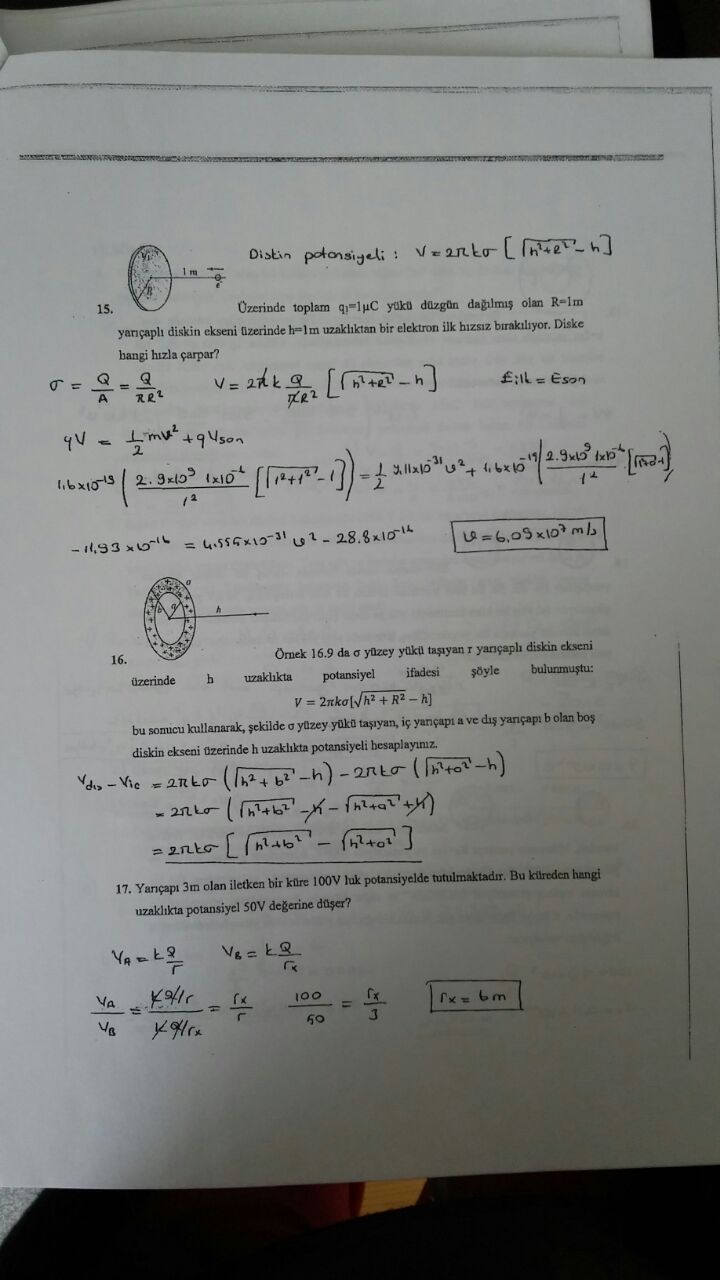 Diskin potansiyeli : V = 2πkσ [√(h²+R²) - h]
1 m
R
e
15. Üzerinde toplam q₁=1µC yükü düzgün dağılmış olan R=1m
yarıçaplı diskin ekseni üzerinde h=1m uzaklıktan bir elektron ilk hızsız bırakılıyor. Diske
hangi hızla çarpar?
σ = Q/A = Q/πR² V = 2πk Q/πR² [√(h²+R²) - h] Eilk = Eson
qV = 1/2 mυ² + qVson
1,6x10⁻¹⁹ ( 2.9x10⁹ 1x10⁻⁶ / 1² [√(1²+1²) - 1] ) = 1/2 9,11x10⁻³¹ υ² + 1,6x10⁻¹⁹ ( 2.9x10⁹ 1x10⁻⁶ / 1²
- 11,93 x 10⁻¹⁶ = 4,555x10⁻³¹ υ² - 28.8x10⁻¹⁶ υ = 6,09x10⁷ m/s
h
16. Örnek 16.9 da σ yüzey yükü taşıyan r yarıçaplı diskin ekseni
üzerinde h uzaklıkta potansiyel ifadesi şöyle bulunmuştu:
V = 2πkσ[√(h² + R²) - h]
bu sonucu kullanarak, şekilde σ yüzey yükü taşıyan, iç yarıçapı a ve dış yarıçapı b olan boş
diskin ekseni üzerinde h uzaklıkta potansiyeli hesaplayınız.
Vdış - Viç = 2πkσ (√(h² + b²) - h) - 2πkσ (√(h²+a²) - h)
= 2πkσ (√(h²+b²) - h - √(h²+a²) + h)
= 2πkσ [ √(h²+b²) - √(h²+a²) ]
17. Yarıçapı 3m olan iletken bir küre 100V luk potansiyelde tutulmaktadır. Bu küreden hangi
uzaklıkta potansiyel 50V değerine düşer?
VA = k Q/r VB = k Q/rx
VA/VB = (kQ/r)/(kQ/rx) = rx/r 100/50 = rx/3 rx = 6m